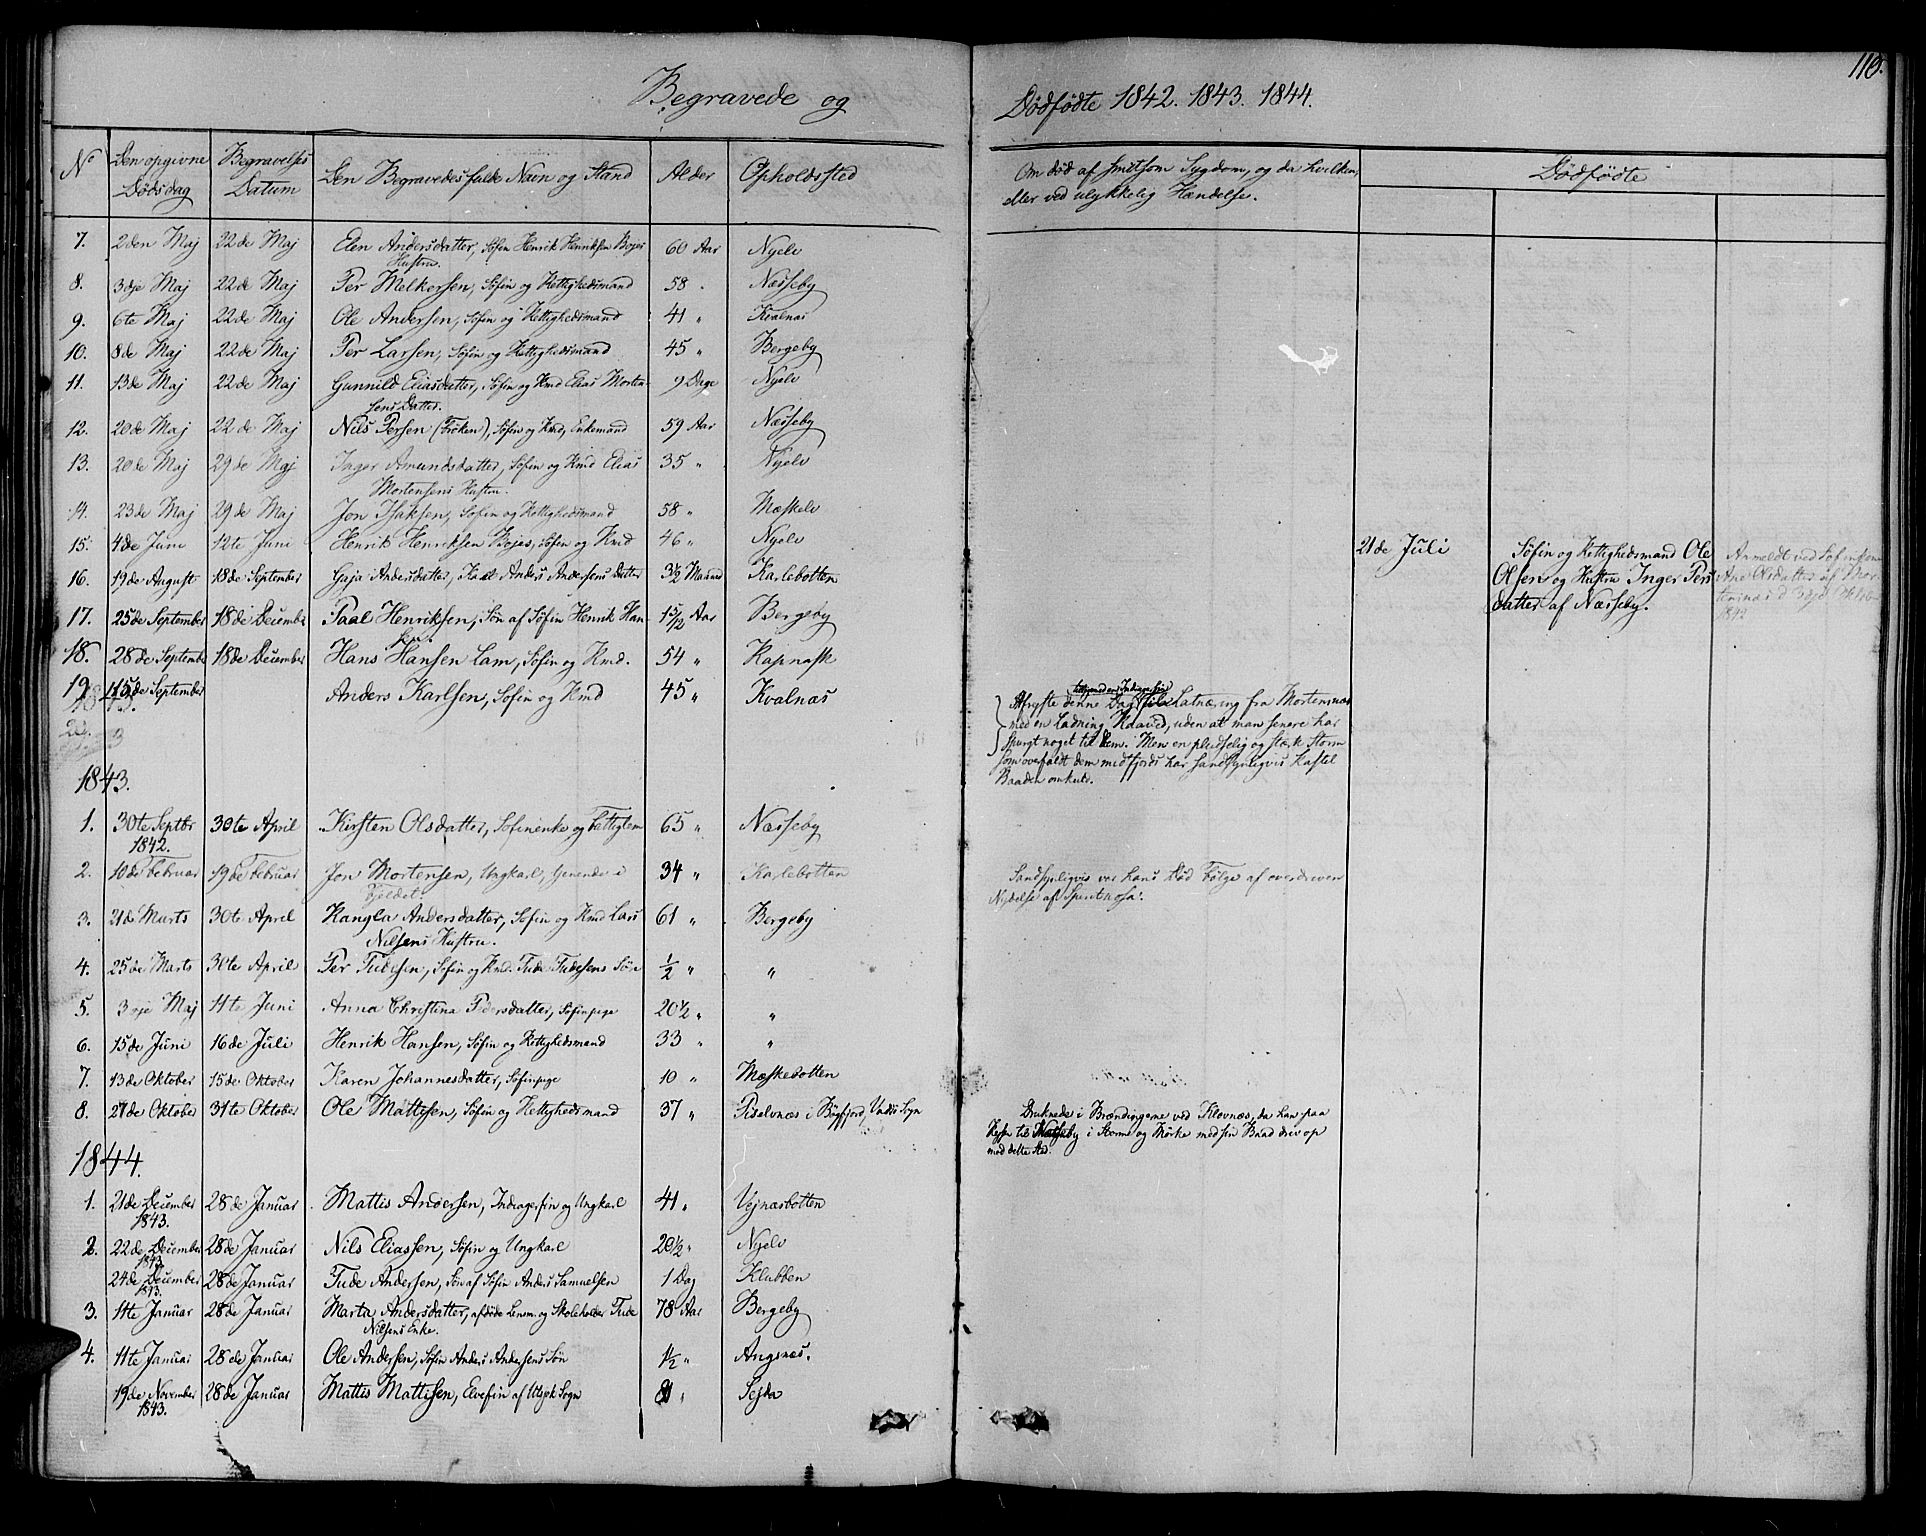 110.
Begravede og Dødfødte 1842. 1843. 1844.
No Den opgivne Dødsdag Begravelses Datum Den Begravedes fulde Navn og Stand Alder Opholdsted Om død af smitsom Sygdom, og da hvilken, eller ved ulykkelig Hændelse. Dødfødte
7. 2den Maj 22de Maj Elen Andersdatter, Søfin Henrik Henriksen Bojes 60 Aar Nyelv
Hustru.
8. 3dje Maj 22de Maj Per Melkersen, Søfin og Rettighedsmand 58 " Næsseby
9. 6te Maj 22de Maj Ole Andersen, Søfin og Rettighedsmand 41 " Kvalnæs
10. 8de Maj 22de Maj Per Larsen, Søfin og Rettighedsmand 45 " Bergeby
11. 13de Maj 22de Maj Gunnild Eliasdatter, Søfin og Rmd Elias Morten- 9 Dage Nyelv
sens Datter.
12. 20de Maj 22de Maj Nils Persen (Frøken), Søfin og Rmd, Enkemand 59 Aar Næsseby
13. 20de Maj 29de Maj Inger Amundsdatter, Søfin og Rmd Elias 35 " Nyelv
Mortensens Hustru.
14. 23de Maj 29de Maj Jon Isaksen, Søfin og Rettighedsmand 58 " Mæskelv
15. 4de Juni 12te Juni Henrik Henriksen Bojes, Søfin og Rmd 46 " Nyelv
21de Juli Søfin og Rettighedsmand Ole
Olsen og Hustru Inger Pers-
datter af Næsseby.
Anmeldt ved Søfinkone
Ane Olsdatter af
3dje Oktober
1842
16. 19de August 18de September Gaja Andersdatter, Karl Anders Andersens Datter 3½ Maaned Karlebotten
17. 25de September 18de December Paal Henriksen, Søn af Søfin Henrik Han- 1 5/12 Aar Bergeby
sen.
18. 28de September 18de December Hans Hansen Lam, Søfin og Rmd. 54 " Kapnask
19 15de September Anders Karlsen, Søfin og Rmd 45 " Kvalnæs
Afrejste denne Dag til Latnæring fra Mortensnæs
med en Ladning Raaved, uden at man senere har
spurgt noget til dem. Men en pludselig og stærk Storm
som overfaldt dem midtfjords har sandsynligvis kastet
Baaden omkuld.
20.
1843.
1. 30te Septbr 30te April Kirsten Olsdatter, Søfinenke og Fattiglem 65 " Næsseby
1842.
2. 10de Februar 19de Februar Jon Mortensen, Ungkarl, tjenende i 34 " Karlebotten
Fjeldet.
Sandsynligvis var hans Død Følge af overdreven
Nydelse af Spirituosa.
3. 21de Marts 30te April Rangla Andersdatter, Søfin og Rmd Lars 61 " Bergeby
Nilsens Hustru.
4. 25de Marts 30te April Per Tudesen, Søfin og Rmd. Tude Tudesens Søn ½ " "
5. 3dje Maj 11te Juni Anna Christina Pedersdatter, Søfinpige 20½ " "
6. 15de Juni 16de Juli Henrik Hansen, Søfin og Rettighedsmand 33 " "
7. 13de Oktober 15de Oktober Karen Johannesdatter, Søfinpige 10 " Mæskebotten
8. 27de Oktober 31te Oktober Ole Mattisen, Søfin og Rettighedsmand 37 " Piselvnæs i Bøgfjord, Vadsø Sogn
Druknede i Brændingerne ved Klovnæs, da han paa
Rejse til Næsseby i Storm og Mørke med sin Baad drev op
mod dette Sted.
1844.
1. 21de December 28de Januar Mattis Andersen, Indragerfin og Ungkarl 41 " Vejnæsbotten
1843.
2. 22de December 28de Januar Nils Eliassen, Søfin og Ungkarl 20½ " Nyelv
1843.
24de December 28de Januar Tude Andersen, Søn af Søfin Anders Samuelsen 1 Dag Klubben
1843.
3. 11te Januar 28de Januar Marta Andersdatter, afdøde Lensm. og Skoleholder Tude 78 Aar Bergeby
Nilsens Enke.
4. 11te Januar 28de Januar Ole Andersen, Søfin Anders Andersens Søn 1½ " Angsnæs.
19de November 28de Januar Mattis Mattisen, Elvefin af Utsjok Sogn " Sejda
1843.